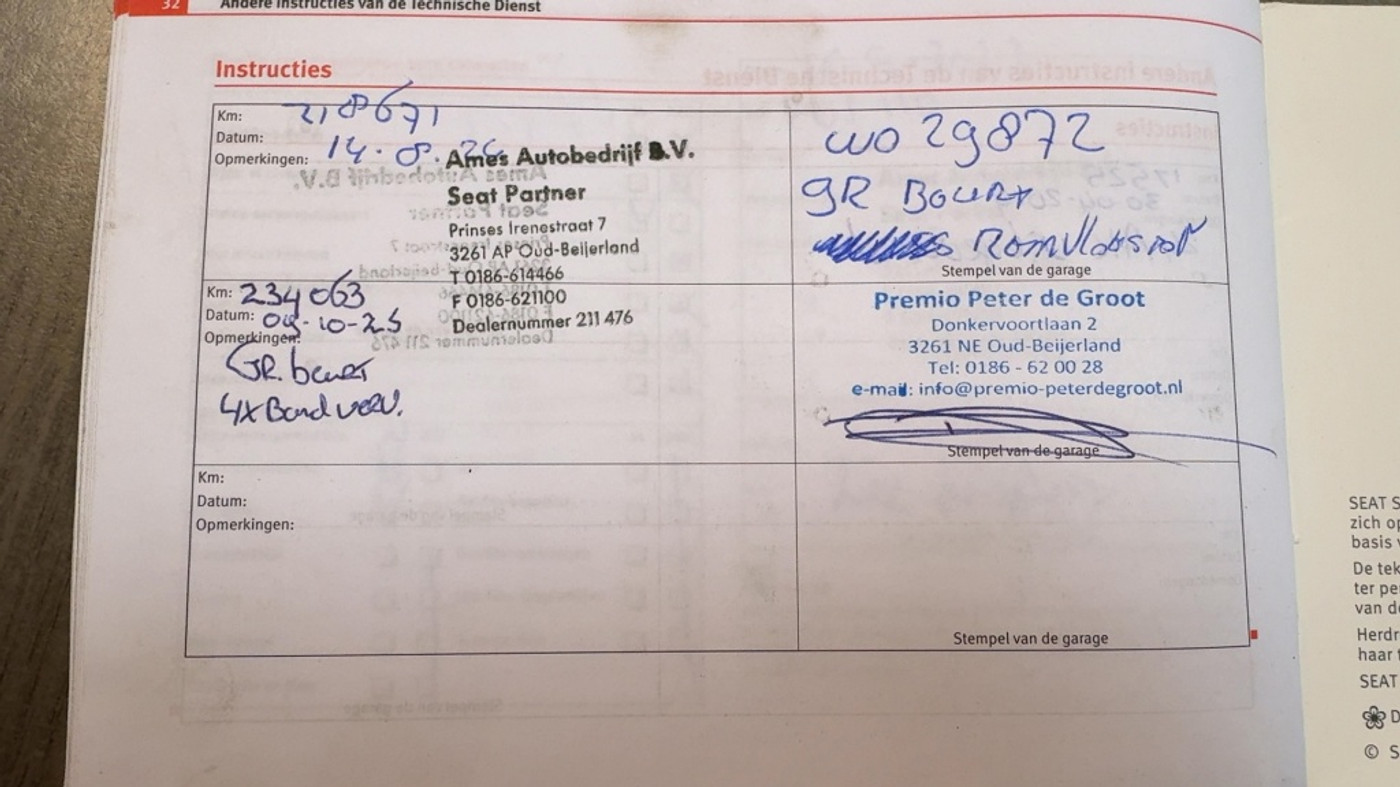 32 Andere Instructies van de Technische Dienst
Instructies
Km: 218671
Datum: 14.8.
Opmerkingen:
Ames Autobedrijf B.V.
Seat Partner
Prinses Irenestraat 7
3261 AP Oud-Beijerland
T 0186-614466
F 0186-621100
Dealernummer 211 476
WO 29872
GR Beurt
Remvloeistof
Stempel van de garage
Km: 234063
Datum: 09-10-25
Opmerkingen:
GR. beurt
4x Band verv.
Premio Peter de Groot
Donkervoortlaan 2
3261 NE Oud-Beijerland
Tel: 0186 - 62 00 28
e-mail: info@premio-peterdegroot.nl
Stempel van de garage
Km:
Datum:
Opmerkingen:
Stempel van de garage
SEAT S
zich op
basis
De tek
ter pe
van d
Herdr
haar
SEAT
D
© S